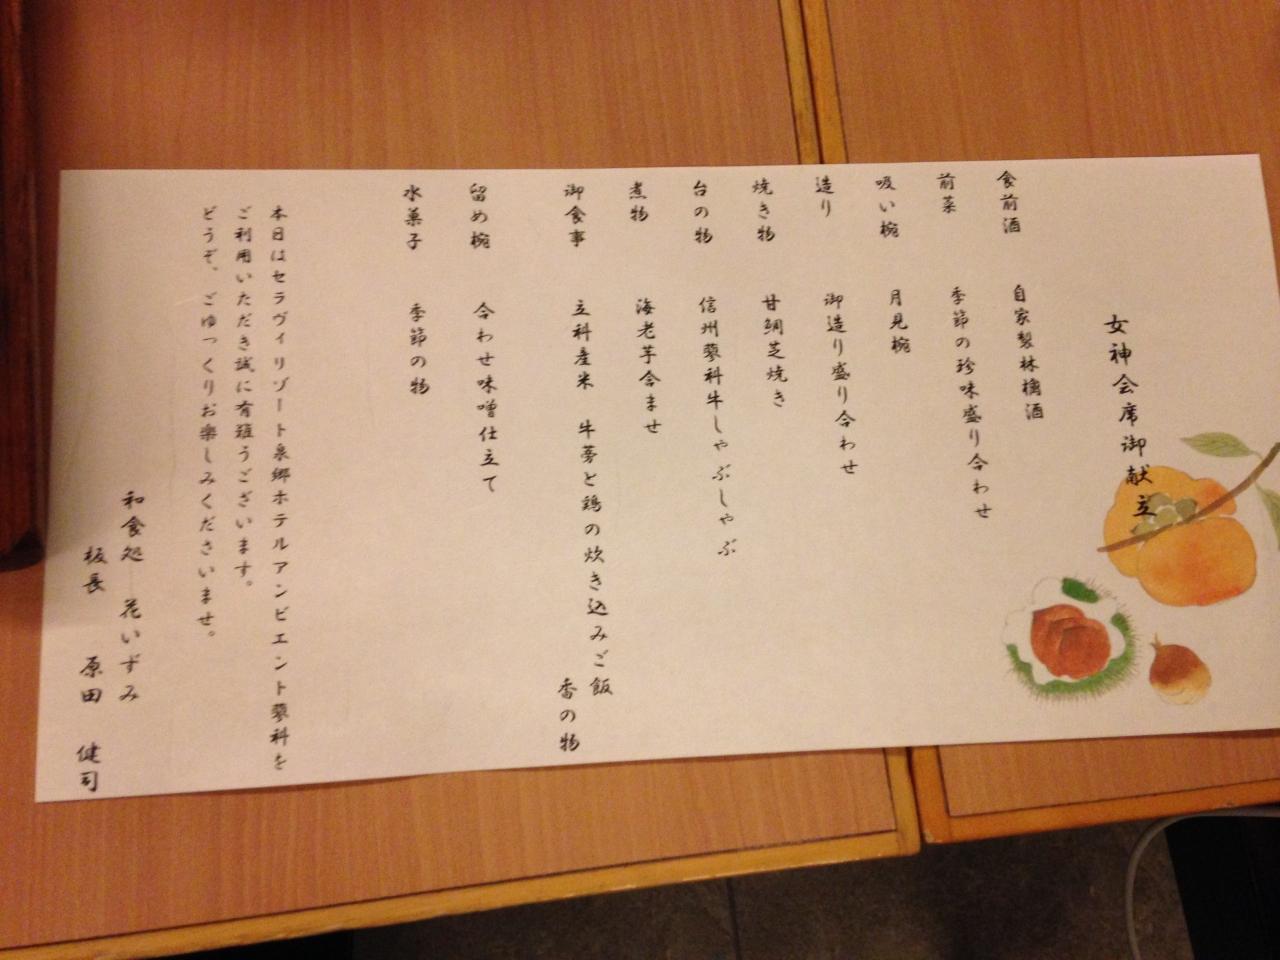 女神会席御献立
食前酒　自家製林檎酒
前菜　季節の珍味盛り合わせ
吸い椀　月見椀
造り　御造り盛り合わせ
焼き物　甘鯛芝焼き
台の物　信州蓼科牛しゃぶしゃぶ
煮物　海老芋含ませ
御食事　立科産米　牛蒡と鶏の炊き込みご飯
香の物
留め椀　合わせ味噌仕立て
水菓子　季節の物
本日はセラヴィリゾート泉郷ホテルアンビエント蓼科を
ご利用いただき誠に有難うございます。
どうぞ、ごゆっくりお楽しみくださいませ。
和食処　花いずみ
板長　原田　健司